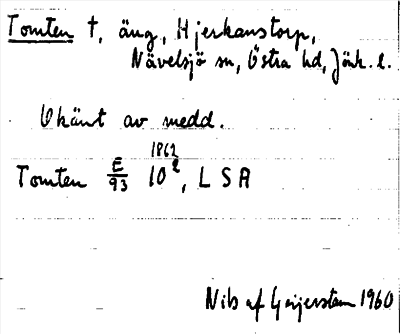 Tomten †, äng, Hjerkanstorp,
Nävelsjö sn, Östra hd, Jönk. l.
Okänt av medd.
1862
Tomten E/93 10², LSA
Nils af Geijerstam 1960